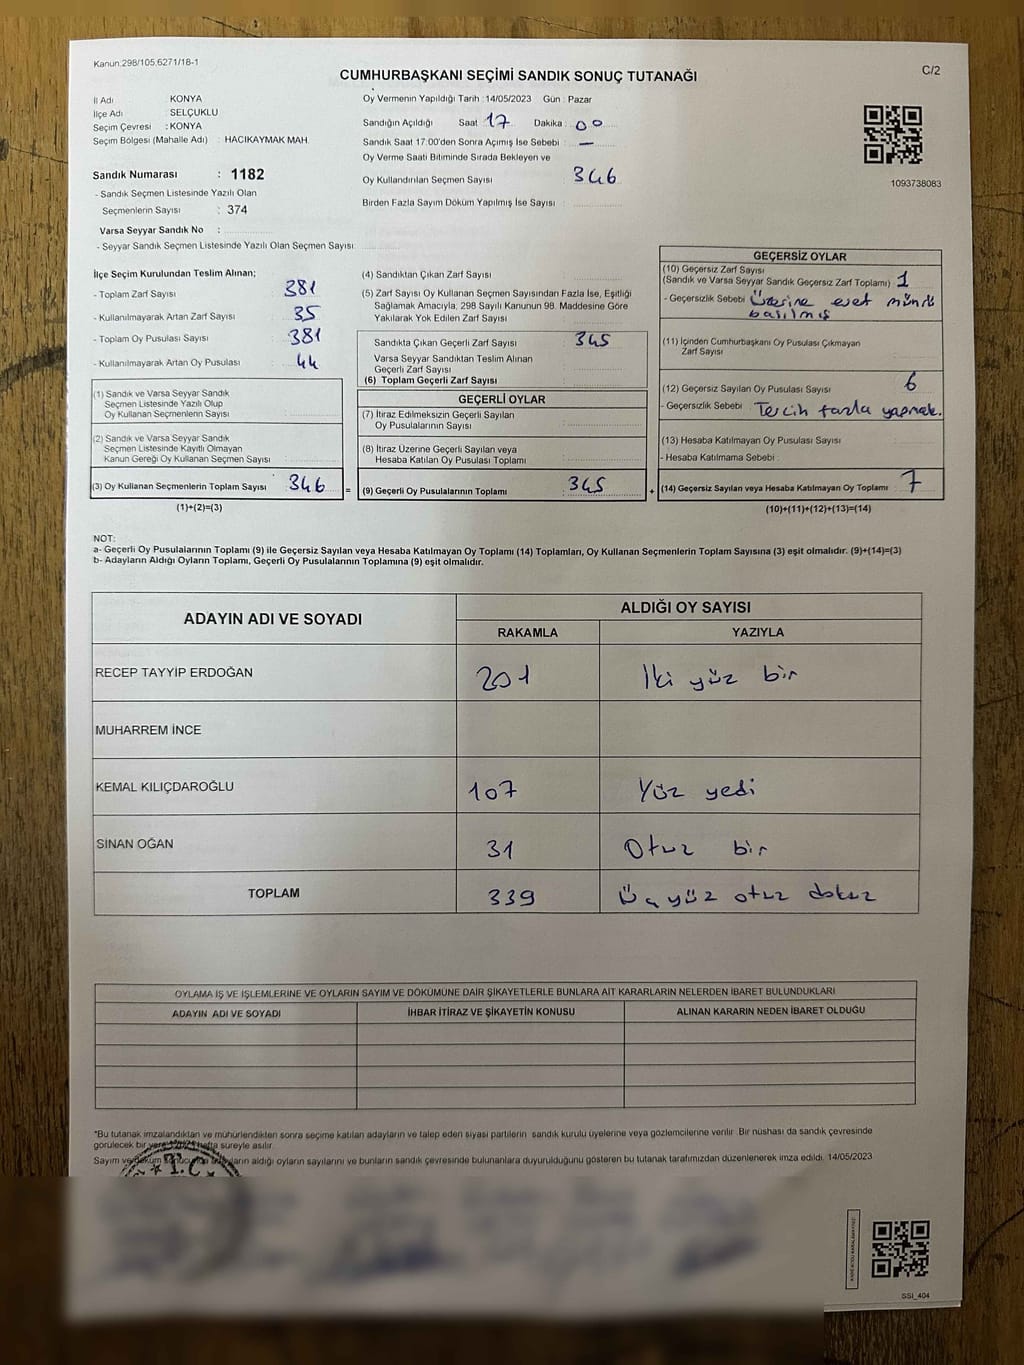 Kanun:298/105,6271/18-1
CUMHURBAŞKANI SEÇİMİ SANDIK SONUÇ TUTANAĞI
C/2
İl Adı KONYA
İlçe Adı : SELÇUKLU
Seçim Çevresi : KONYA
Seçim Bölgesi (Mahalle Adı) : HACIKAYMAK MAH.
Sandık Numarası : 1182
- Sandık Seçmen Listesinde Yazılı Olan
Seçmenlerin Sayısı : 374
Varsa Seyyar Sandık No :
- Seyyar Sandık Seçmen Listesinde Yazılı Olan Seçmen Sayısı:
Oy Vermenin Yapıldığı Tarih :14/05/2023 Gün : Pazar
Sandığın Açıldığı Saat : 17 Dakika : 00
Sandık Saat 17:00'den Sonra Açımış İse Sebebi : —
Oy Verme Saati Bitiminde Sırada Bekleyen ve
Oy Kullandırılan Seçmen Sayısı : 346
Birden Fazla Sayım Döküm Yapılmış İse Sayısı :
1093738083
İlçe Seçim Kurulundan Teslim Alınan;
- Toplam Zarf Sayısı : 381
- Kullanılmayarak Artan Zarf Sayısı : 35
- Toplam Oy Pusulası Sayısı : 381
- Kullanılmayarak Artan Oy Pusulası : 44
(1) Sandık ve Varsa Seyyar Sandık
Seçmen Listesinde Yazılı Olup
Oy Kullanan Seçmenlerin Sayısı :
(2) Sandık ve Varsa Seyyar Sandık
Seçmen Listesinde Kayıtlı Olmayan
Kanun Gereği Oy Kullanan Seçmen Sayısı :
(3) Oy Kullanan Seçmenlerin Toplam Sayısı : 346 =
(1)+(2)=(3)
(4) Sandıktan Çıkan Zarf Sayısı :
(5) Zarf Sayısı Oy Kullanan Seçmen Sayısından Fazla İse, Eşitliği
Sağlamak Amacıyla; 298 Sayılı Kanunun 98. Maddesine Göre
Yakılarak Yok Edilen Zarf Sayısı :
Sandıkta Çıkan Geçerli Zarf Sayısı : 345
Varsa Seyyar Sandıktan Teslim Alınan
Geçerli Zarf Sayısı :
(6) Toplam Geçerli Zarf Sayısı :
GEÇERLİ OYLAR
(7) İtiraz Edilmeksizin Geçerli Sayılan
Oy Pusulalarının Sayısı :
(8) İtiraz Üzerine Geçerli Sayılan veya
Hesaba Katılan Oy Pusulası Toplamı :
(9) Geçerli Oy Pusulalarının Toplamı : 345 +
GEÇERSİZ OYLAR
(10) Geçersiz Zarf Sayısı
(Sandık ve Varsa Seyyar Sandık Geçersiz Zarf Toplamı) : 1
- Geçersizlik Sebebi : Üzerine evet mührü
basılmış
(11) İçinden Cumhurbaşkanı Oy Pusulası Çıkmayan
Zarf Sayısı :
(12) Geçersiz Sayılan Oy Pusulası Sayısı : 6
- Geçersizlik Sebebi : Tercih fazla yapmak.
(13) Hesaba Katılmayan Oy Pusulası Sayısı :
- Hesaba Katılmama Sebebi :
(14) Geçersiz Sayılan veya Hesaba Katılmayan Oy Toplamı : 7
(10)+(11)+(12)+(13)=(14)
NOT:
a- Geçerli Oy Pusulalarının Toplamı (9) ile Geçersiz Sayılan veya Hesaba Katılmayan Oy Toplamı (14) Toplamları, Oy Kullanan Seçmenlerin Toplam Sayısına (3) eşit olmalıdır. (9)+(14)=(3)
b- Adayların Aldığı Oyların Toplamı, Geçerli Oy Pusulalarının Toplamına (9) eşit olmalıdır.
ADAYIN ADI VE SOYADI
ALDIĞI OY SAYISI
RAKAMLA YAZIYLA
RECEP TAYYİP ERDOĞAN 201 İki yüz bir
MUHARREM İNCE
KEMAL KILIÇDAROĞLU 107 Yüz yedi
SİNAN OĞAN 31 Otuz bir
TOPLAM 339 Üç yüz otuz dokuz
OYLAMA İŞ VE İŞLEMLERİNE VE OYLARIN SAYIM VE DÖKÜMÜNE DAİR ŞİKAYETLERLE BUNLARA AİT KARARLARIN NELERDEN İBARET BULUNDUKLARI
ADAYIN ADI VE SOYADI İHBAR İTİRAZ VE ŞİKAYETİN KONUSU ALINAN KARARIN NEDEN İBARET OLDUĞU
*Bu tutanak imzalandıktan ve mühürlendikten sonra seçime katılan adayların ve talep eden siyasi partilerin sandık kurulu üyelerine veya gözlemcilerine verilir. Bir nüshası da sandık çevresinde
görülecek bir yere hafta süreyle asılır.
Sayım ve döküm sonucunda adayların aldığı oyların sayılarını ve bunların sandık çevresinde bulunanlara duyurulduğunu gösteren bu tutanak tarafımızdan düzenlenerek imza edildi. 14/05/2023
T.C
SSI_404